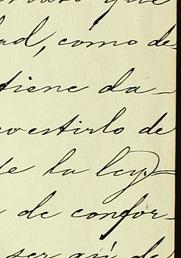 que
ad, como de
tiene da-
vestirlo de
de la ley
de confor-
ser así de